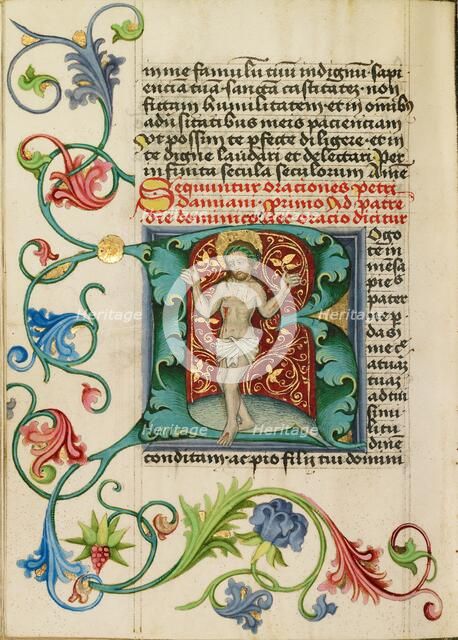 mine famulū tuū indignū· sapi
encia tua· sancta castitatez· non
fictam humilitatem· et in omībȝ
aduſitatibus meis pacienciam
Vt possim te pfecte diligere· et in
te digne laudari et delectari Per
infinita secula seculorum Ame
Sequuntur oraciones petri
damiani· Primo Ad patrē
die dominico hec oratio dicatur
R
ogo
te in
mēsa
pieˢ
pater
ut per
das
me
atuaz
tuaz
ad tui
simi
litu
dinē
conditam· ac pro filii tui domini
Heritage
Heritage
Heritage
Heritage
Heritage
Heritage